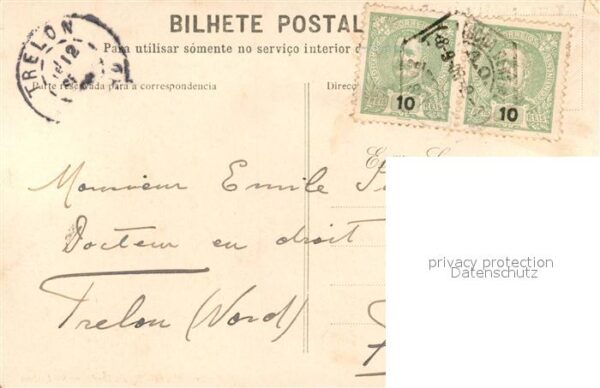 BILHETE POSTAL
Para utilisar sómente no serviço interior d
Parte reservada para a correspondencia
Direc
TRELON
12
10
10
REIS
Monsieur Emile
Docteur en droit
Trelon (Nord)
privacy protection
Datenschutz